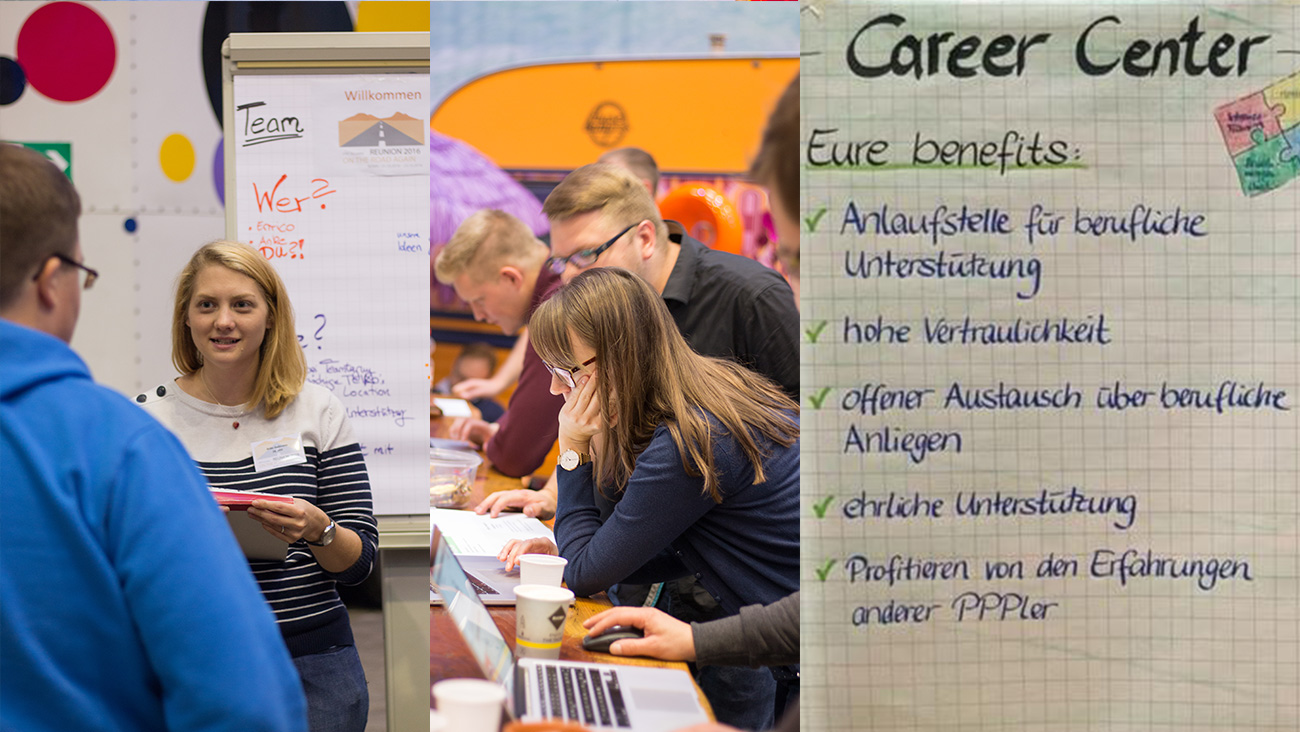 Team
Willkommen
REUNION 2016
ON THE ROAD AGAIN
Wer?
• Enrico
• AnRe
Du?!
unsere
Ideen
?
Location
Unterstützung
mit
Career Center
Eure benefits:
✓ Anlaufstelle für berufliche
Unterstützung
✓ hohe Vertraulichkeit
✓ offener Austausch über berufliche
Anliegen
✓ ehrliche Unterstützung
✓ Profitieren von den Erfahrungen
anderer PPPler